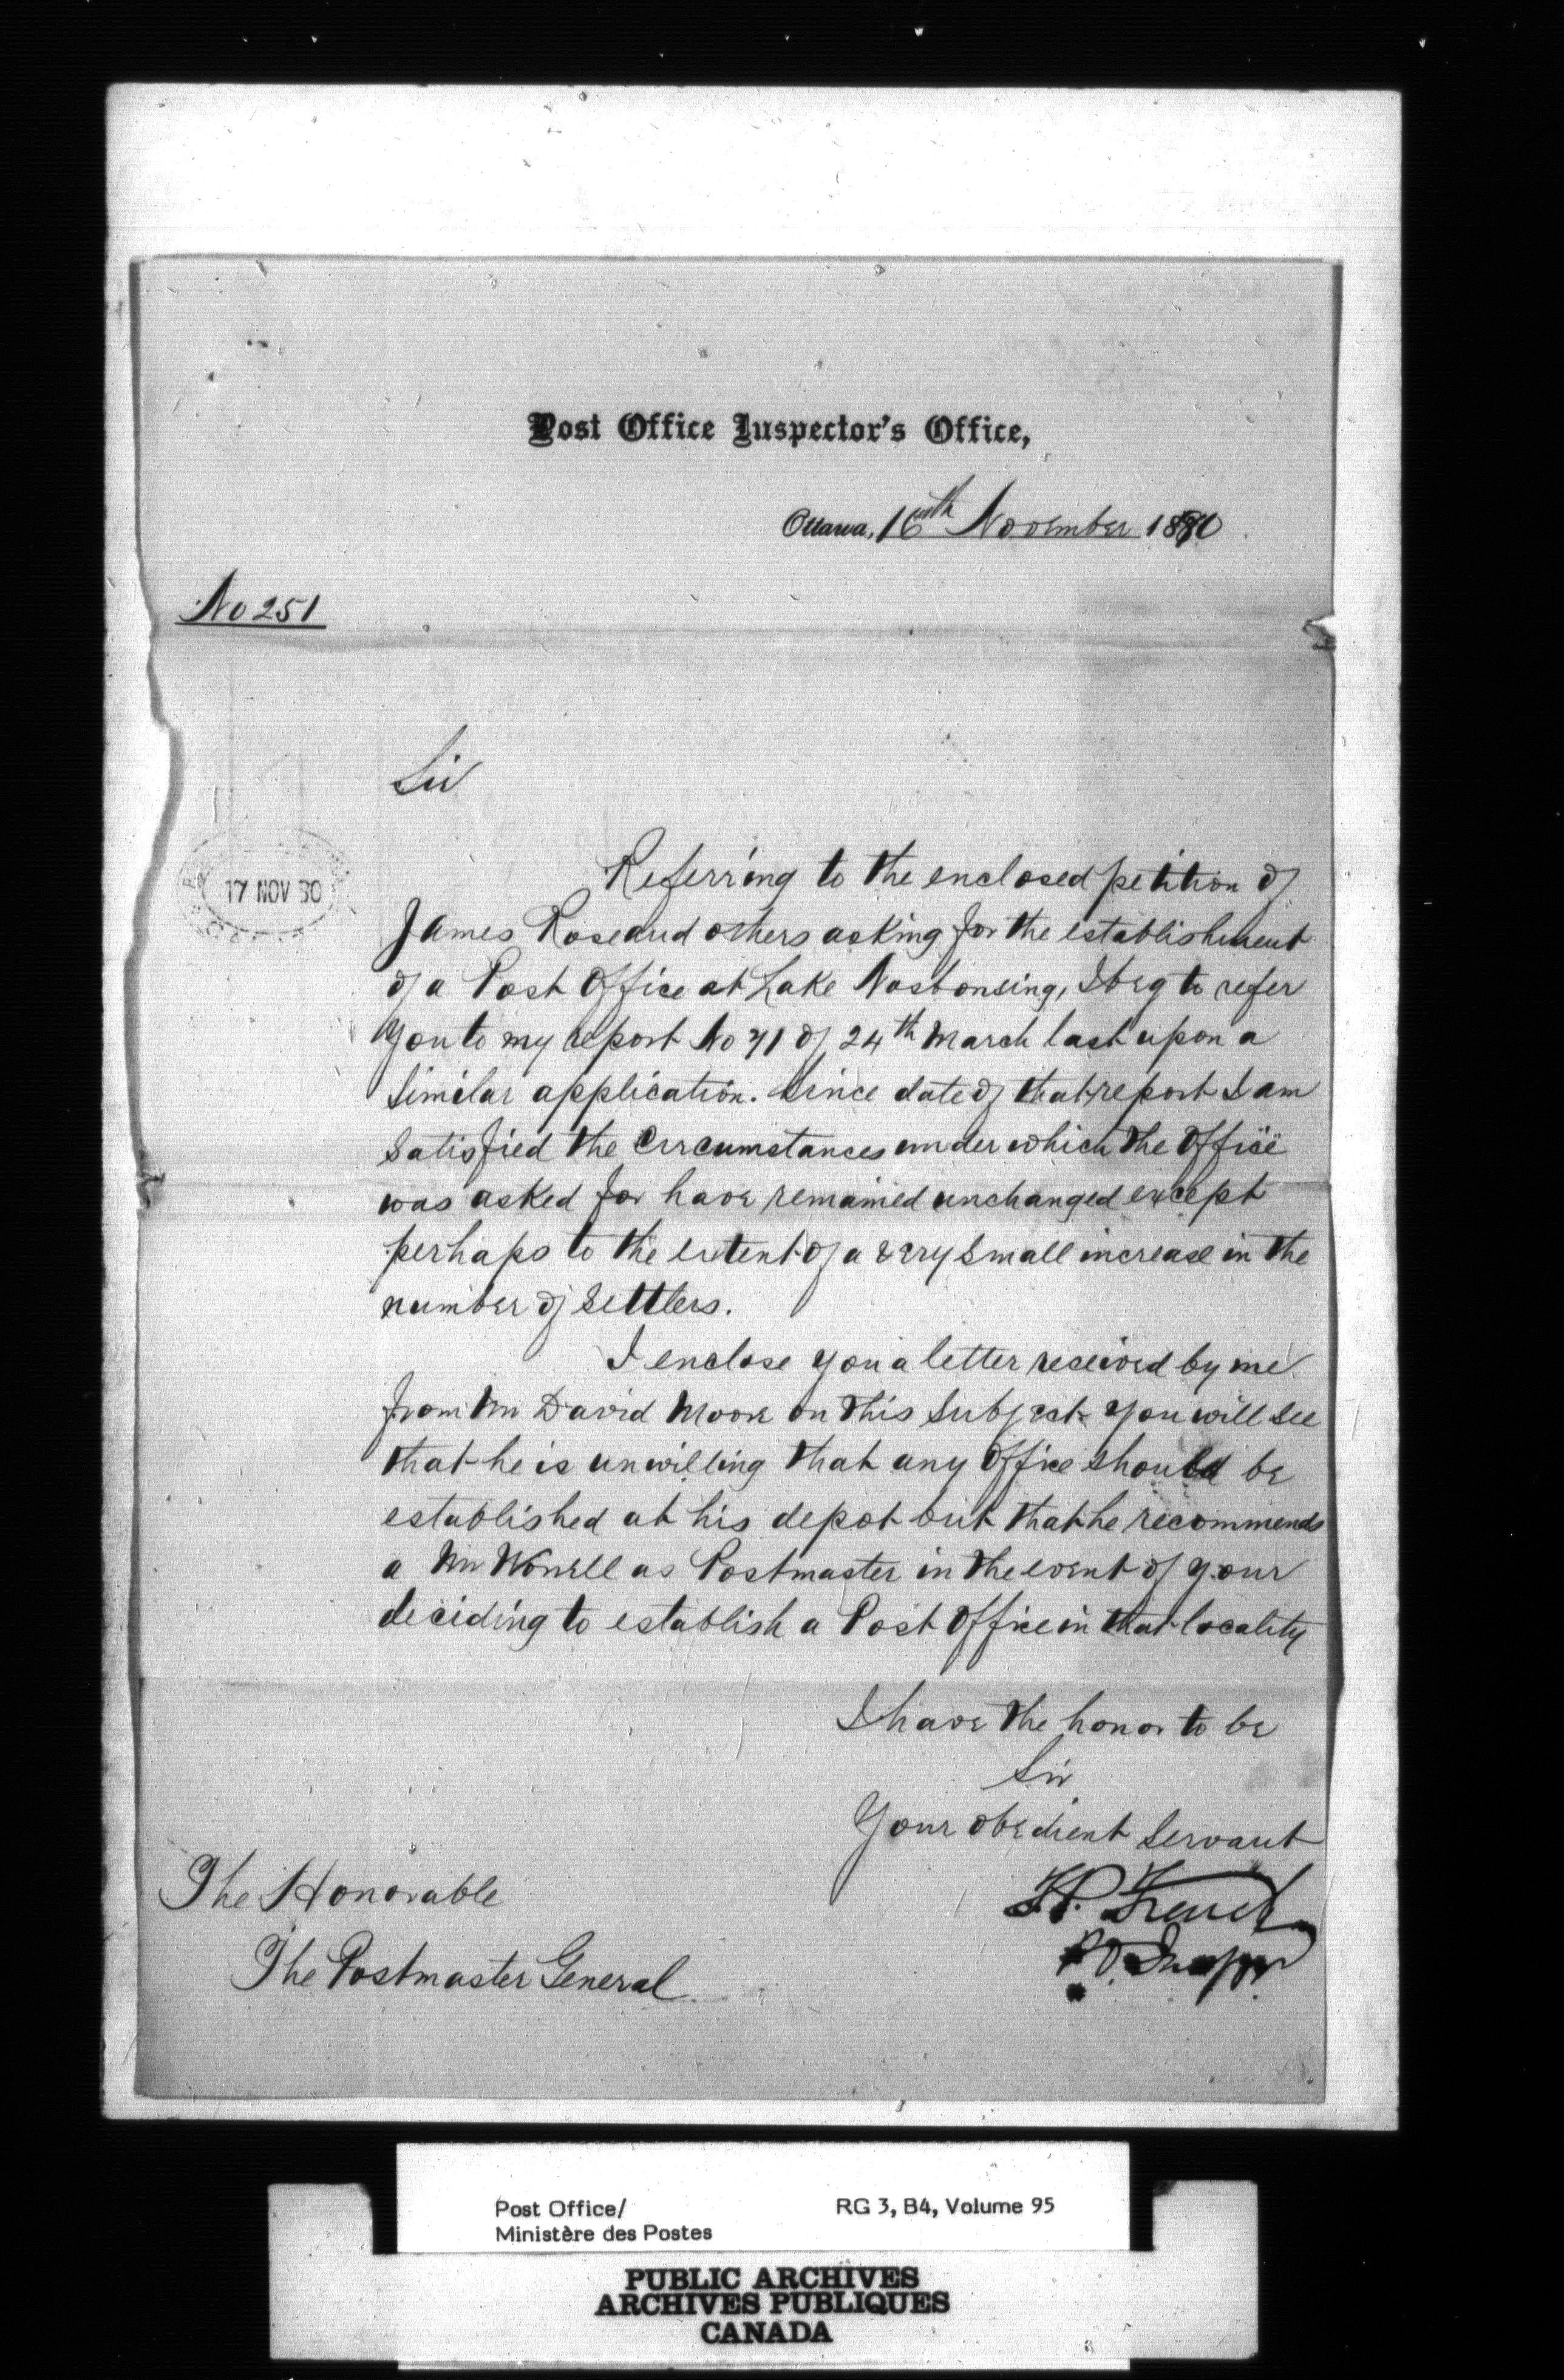 Post Office Inspector's Office,
Ottawa, 16th November 1880
No 251
Sir
17 NOV 80
Referring to the enclosed petition of
James Rose and others asking for the establishment
of a Post Office at Lake Nosbonsing, I beg to refer
you to my report No 71 of 24th March last upon a
similar application. Since date of that report I am
satisfied the circumstances under which the Office
was asked for have remained unchanged except
perhaps to the extent of a very small increase in the
number of settlers.
I enclose you a letter received by me
from Mr David Moore on this subject. You will see
that he is unwilling that any Office should be
established at his depot but that he recommends
a Mr as Postmaster in the event of your
deciding to establish a Post Office in that locality
I have the honor to be
Sir
Your obedient servant
French
P.O. Inspr
The Honorable
The Postmaster General
Post Office/
Ministère des Postes
RG 3, B4, Volume 95
PUBLIC ARCHIVES
ARCHIVES PUBLIQUES
CANADA